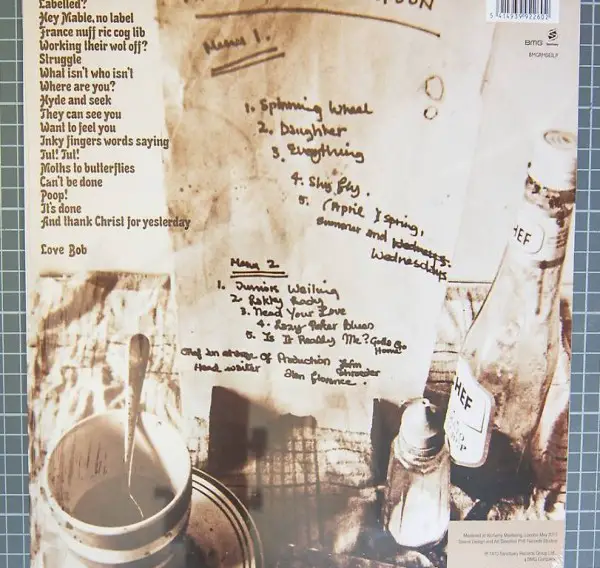 Labelled?
Hey Mable, no label
France nuff ric cog lib
Working their wot off?
Struggle
What isn't who isn't
Where are you?
Hyde and seek
They can see you
Want to feel you
Inky fingers words saying
Tul! Tul!
Moths to butterflies
Can't be done
Poop!
It's done
And thank Christ for yesterday
Love Bob
Menu 1.
1. Spinning Wheel
2. Daughter
3. Everything
4. Shy Fly.
5. (April) Spring,
Summer and Wednesdays.
Wednesdays
Menu 2.
1. Junior's Wailing
2. Lakky Lady
3. Need Your Love
4. Lazy Poker Blues
5. Is It Really Me? Gotta Go
Home
Chef in charge of Production John
Schroeder
Head waiter Alan Florence.
5 414939 922602
BMG
BMGRM060LP
HEF
CHEF
Mastered at Alchemy Mastering, London May 2015